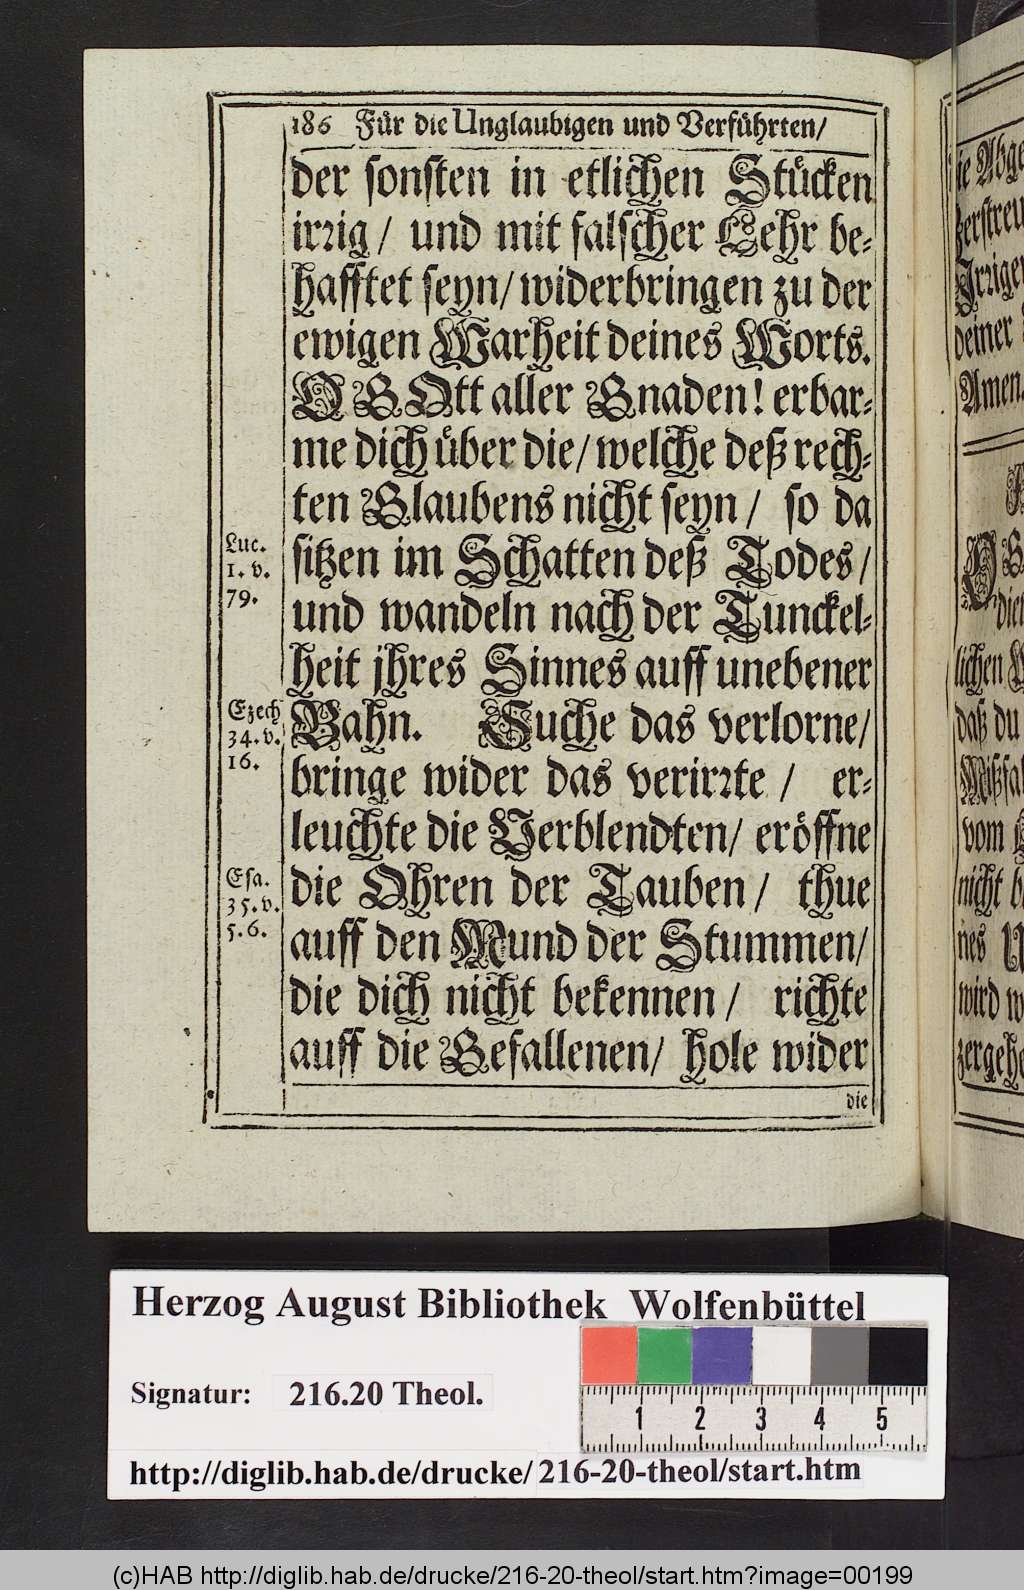 186 Für die Unglaubigen und Verführten/
der sonsten in etlichen Stücken
irrig/ und mit falscher Lehr be-
hafftet seyn/ widerbringen zu der
ewigen Warheit deines Worts.
O GOtt aller Gnaden! erbar-
me dich über die/ welche deß rech-
ten Glaubens nicht seyn/ so da
sitzen im Schatten deß Todes/
und wandeln nach der Tunckel-
heit jhres Sinnes auff unebener
Bahn. Suche das verlorne/
bringe wider das verirrte/ er-
leuchte die Verblendten/ eröffne
die Ohren der Tauben/ thue
auff den Mund der Stummen/
die dich nicht bekennen/ richte
auff die Gefallenen/ hole wider
die
Luc.
1. v.
79.
Ezech
34. v.
16.
Esa.
35. v.
5. 6.
ie Abge
zerstreu
Irrige
deiner
Amen.
lichen
daß du
Mißfal
vom
nicht b
nes
wird w
zergehe
Herzog August Bibliothek Wolfenbüttel
Signatur: 216.20 Theol.
1 2 3 4 5
http://diglib.hab.de/drucke/216-20-theol/start.htm
(c)HAB http://diglib.hab.de/drucke/216-20-theol/start.htm?image=00199